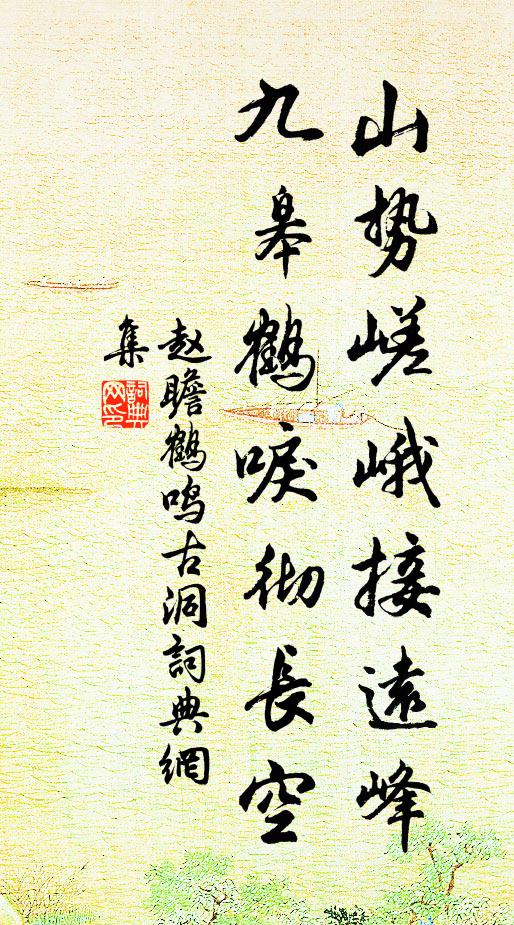 山势嵯峨接遠峰
九皋鶴唳彻長空
赵瞻鶴鸣古洞詞典網
集
詞典
网印